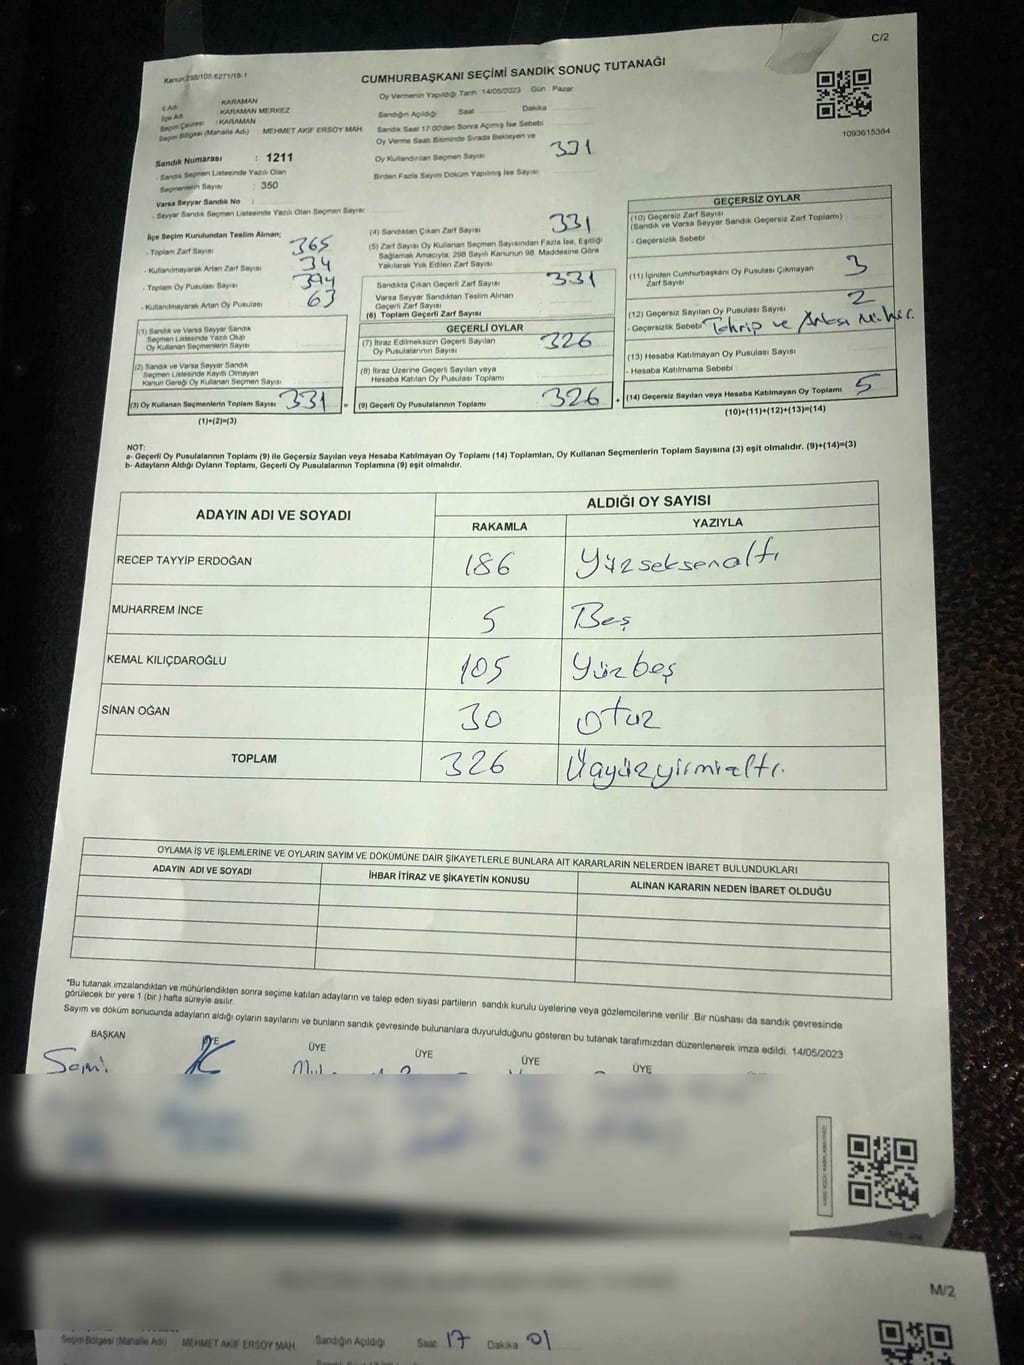 C/2
Kanun:298/105.6271/18-1
CUMHURBAŞKANI SEÇİMİ SANDIK SONUÇ TUTANAĞI
Oy Vermenin Yapıldığı Tarih :14/05/2023 Gün : Pazar
1093615384
İl Adı KARAMAN
İlçe Adı KARAMAN MERKEZ
Seçim Çevresi : KARAMAN
Seçim Bölgesi (Mahalle Adı) MEHMET AKİF ERSOY MAH
Sandık Numarası : 1211
- Sandık Seçmen Listesinde Yazılı Olan
Seçmenlerin Sayısı : 350
Varsa Seyyar Sandık No :
- Seyyar Sandık Seçmen Listesinde Yazılı Olan Seçmen Sayısı:
Sandığın Açıldığı Saat Dakika
Sandık Saat 17:00'den Sonra Açımış İse Sebebi
Oy Verme Saati Bitiminde Sırada Bekleyen ve
Oy Kullandırılan Seçmen Sayısı 331
Birden Fazla Sayım Döküm Yapılmış İse Sayısı
İlçe Seçim Kurulundan Teslim Alınan;
- Toplam Zarf Sayısı 365
- Kullanılmayarak Artan Zarf Sayısı 34
- Toplam Oy Pusulası Sayısı 394
- Kullanılmayarak Artan Oy Pusulası 63
(1) Sandık ve Varsa Seyyar Sandık
Seçmen Listesinde Yazılı Olup
Oy Kullanan Seçmen Sayısı
(2) Sandık ve Varsa Seyyar Sandık
Seçmen Listesinde Kayıtlı Olmayan
Kanun Gereği Oy Kullanan Seçmen Sayısı
(3) Oy Kullanan Seçmenlerin Toplam Sayısı 331 =
(1)+(2)=(3)
(4) Sandıktan Çıkan Zarf Sayısı 331
(5) Zarf Sayısı Oy Kullanan Seçmen Sayısından Fazla İse, Eşitliği
Sağlamak Amacıyla, 298 Sayılı Kanunun 98. Maddesine Göre
Yakılarak Yok Edilen Zarf Sayısı
Sandıkta Çıkan Geçerli Zarf Sayısı 331
Varsa Seyyar Sandıktan Teslim Alınan
Geçerli Zarf Sayısı
(6) Toplam Geçerli Zarf Sayısı
GEÇERLİ OYLAR
(7) İtiraz Edilmeksizin Geçerli Sayılan
Oy Pusulalarının Sayısı 326
(8) İtiraz Üzerine Geçerli Sayılan veya
Hesaba Katılan Oy Pusulası Toplamı
(9) Geçerli Oy Pusulalarının Toplamı 326 +
GEÇERSİZ OYLAR
(10) Geçersiz Zarf Sayısı
(Sandık ve Varsa Seyyar Sandık Geçersiz Zarf Toplamı)
- Geçersizlik Sebebi
(11) İçinden Cumhurbaşkanı Oy Pusulası Çıkmayan
Zarf Sayısı 3
(12) Geçersiz Sayılan Oy Pusulası Sayısı 2
- Geçersizlik Sebebi Tahrip ve Arkası Mühür.
(13) Hesaba Katılmayan Oy Pusulası Sayısı
- Hesaba Katılmama Sebebi
(14) Geçersiz Sayılan veya Hesaba Katılmayan Oy Toplamı 5
(10)+(11)+(12)+(13)=(14)
NOT:
a- Geçerli Oy Pusulalarının Toplamı (9) ile Geçersiz Sayılan veya Hesaba Katılmayan Oy Toplamı (14) Toplamları, Oy Kullanan Seçmenlerin Toplam Sayısına (3) eşit olmalıdır. (9)+(14)=(3)
b- Adayların Aldığı Oyların Toplamı, Geçerli Oy Pusulalarının Toplamına (9) eşit olmalıdır.
ADAYIN ADI VE SOYADI ALDIĞI OY SAYISI
RAKAMLA YAZIYLA
RECEP TAYYİP ERDOĞAN 186 Yüzseksenaltı
MUHARREM İNCE 5 Beş
KEMAL KILIÇDAROĞLU 105 Yüzbeş
SİNAN OĞAN 30 otuz
TOPLAM 326 Üçyüzyirmialtı.
OYLAMA İŞ VE İŞLEMLERİNE VE OYLARIN SAYIM VE DÖKÜMÜNE DAİR ŞİKAYETLERLE BUNLARA AİT KARARLARIN NELERDEN İBARET BULUNDUKLARI
ADAYIN ADI VE SOYADI İHBAR İTİRAZ VE ŞİKAYETİN KONUSU ALINAN KARARIN NEDEN İBARET OLDUĞU
*Bu tutanak imzalandıktan ve mühürlendikten sonra seçime katılan adayların ve talep eden siyasi partilerin sandık kurulu üyelerine veya gözlemcilerine verilir .Bir nüshası da sandık çevresinde
görülecek bir yere 1 (bir ) hafta süreyle asılır.
Sayım ve döküm sonucunda adayların aldığı oyların sayılarını ve bunların sandık çevresinde bulunanlara duyurulduğunu gösteren bu tutanak tarafımızdan düzenlenerek imza edildi. 14/05/2023
BAŞKAN ÜYE ÜYE ÜYE ÜYE ÜYE
M/2
Seçim Bölgesi (Mahalle Adı) MEHMET AKİF ERSOY MAH Sandığın Açıldığı Saat: 17 Dakika 01